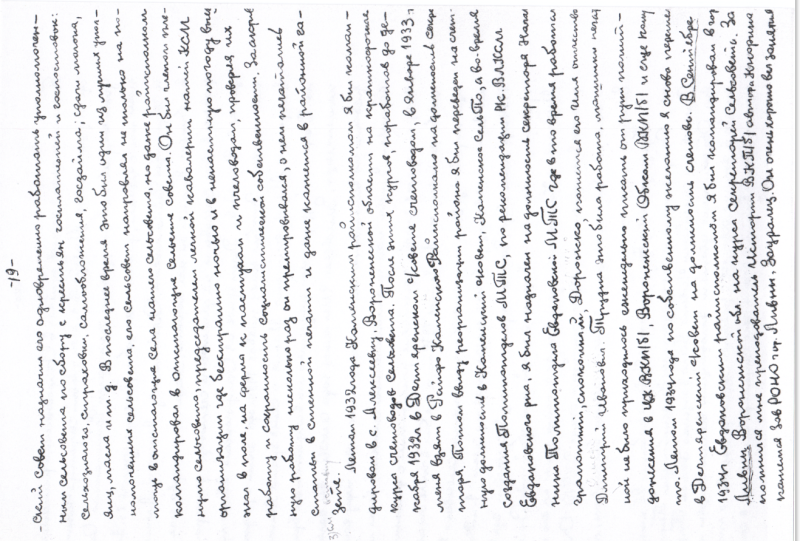 -19-
-ский Совет назначил его одновременно работать уполномочен-
ным сельсовета по сбору с крестьян госплатежей и госпоставок:
сельхозналога, страховки, самообложения, госзайма, сдачи молока,
яиц, масла и т.д. В последнее время это был один из лучших упол-
номоченных сельсовета, его сельсовет направлял не только на по-
мощь в отстающие села нашего сельсовета, но даже райисполком
командировал в отстающие сельские советы. Он был членом пле-
нума сельсовета, председателем легкой кавалерии нашей КСМ
организации где беспрестанно ночью и в ненастную погоду выез-
жал в поле, на ферма к пастухам и пчеловодам, проверял их
работу и сохранность социалистической собственности. За хоро-
шую работу несколько раз он премировался, о нем печатались
статьи в стенной печати и даже кажется в районной га-
зете.
Летом 1932 года Каменским райисполкомом я был коман-
дирован в с. Алексеевку, Воронежской области на краткосрочные
курсы счетоводов сельсовета. После этих курсов, поработав до де-
кабря 1932 г. в Дегтяренском с/совете счетоводом, в январе 1933 г.
меня взяли в Райфо Каменского Райисполкома на должность секре-
таря. Потом ввиду реорганизации района я был переведен на счет-
ную должность в Каменский с/совет, Каменское СельПо, а во время
создания Политотделов МТС, по рекомендации РК ВЛКСМ
Евдаковского р-на, я был назначен на должность секретаря Нач-
ника Политотдела Евдаковской МТС где в то время работал
грамотный, спокойный, Доронько, помнится его имя отчество
Дмитрий Иванович. Трудная это была работа, машинки печат-
ной не было приходилось ежедневно писать от руки полит-
донесения в ЦК ВКП/б/, Воронежский Обком ВКП/б/ и еще кому
то. Летом 1934 года по собственному желанию я снова перешел
в Дегтяренский с/совет на должность счетовода. В Сентябре
1934 г. Евдаковским райисполкомом я был командирован в гор.
Ливны Воронежской обл. на курсы Секретарей Сельсоветов. За-
помнился мне преподаватель Истории ВКП/б/ автор Кнорина
кажется Зав РОНО гор. Ливны, Зауралец. Он очень хорошо вел занятия